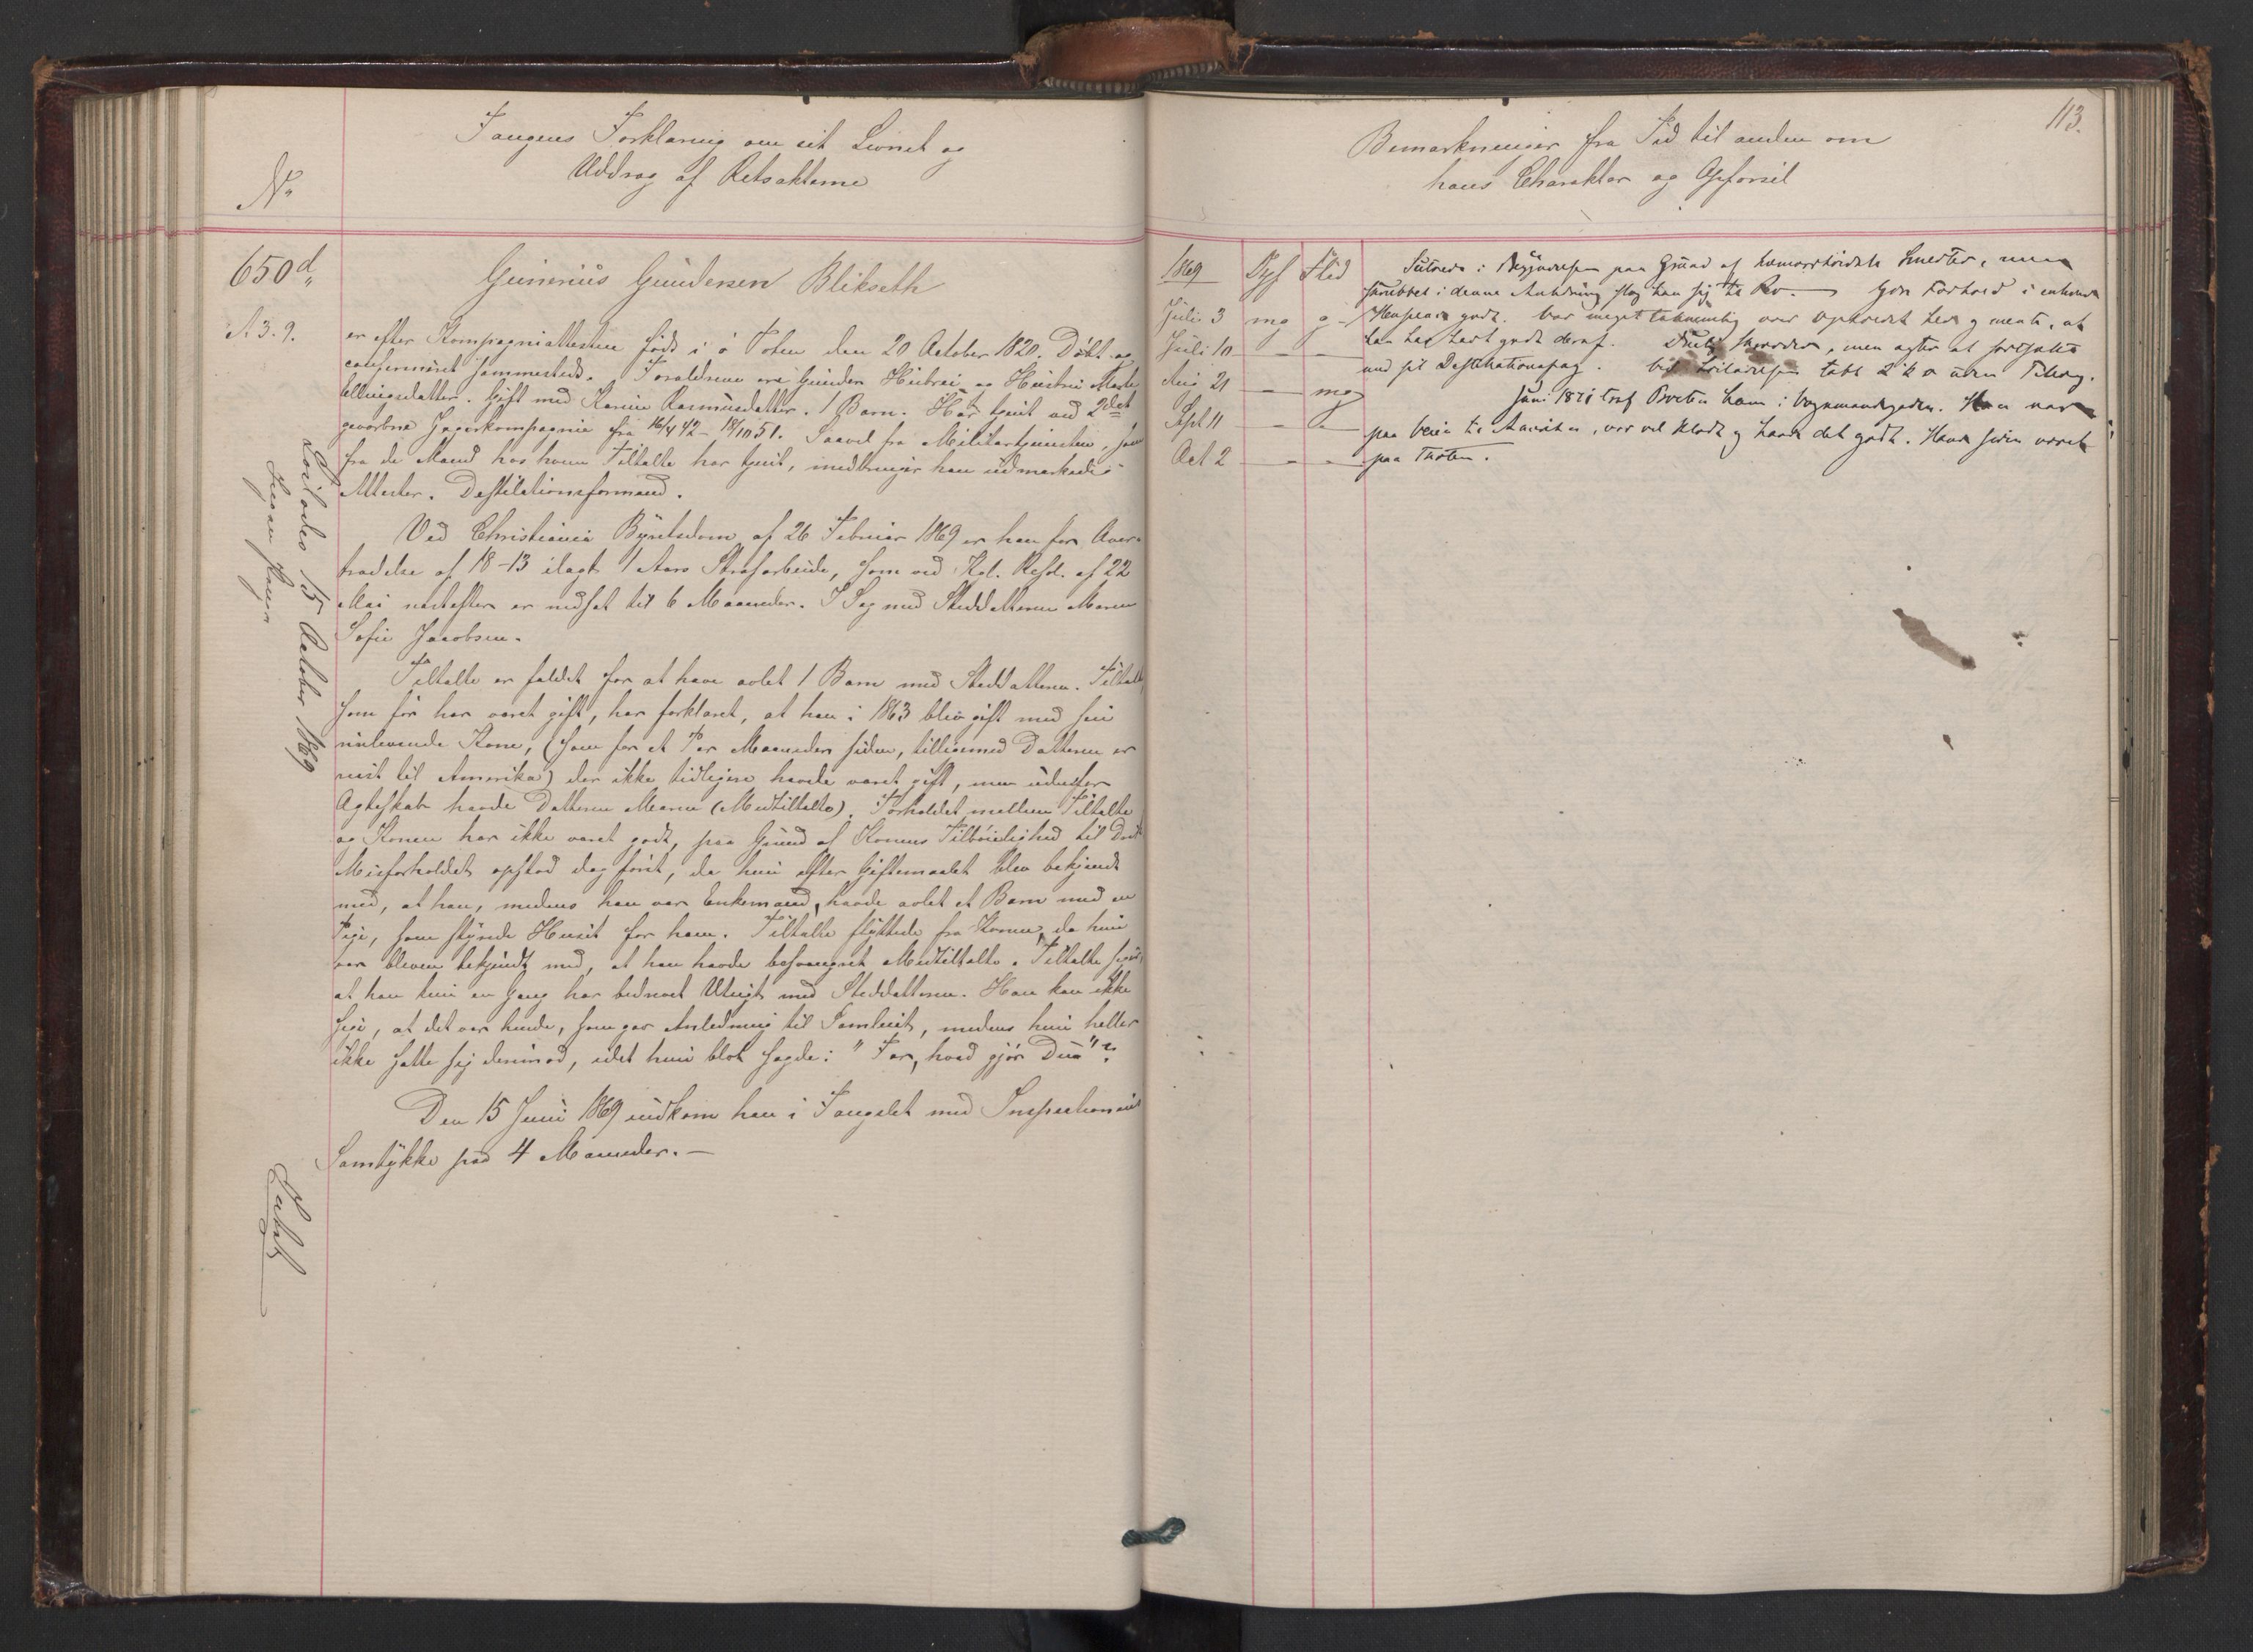 Fangens Forklaring om sit Levnet og
Uddrag af Retsakterne
No
650d
A 3. 9.
Gunerius Gundersen Blikseth
er efter Kompagniattesten født i ø Toten den 20 October 1820. Døbt og
confirmeret sammesteds. Forældrene ere Gunder Husbrei og Husbrei Marte
Ellingsdatter. Gift med Karine Rasmusdatter. 1 Barn. Har tjent ved 2det
gevorbne Jægerkompagnie fra 16/4 42 - 18/10 51. Saavel fra Militærtjenesten, som
fra de Mænd hos hvem Tiltalte har tjent, medbringer han udmærkede
Attester. Destilationsformand.
Ved Christiania Byretsdom af 26 Februar 1869 er han for Over-
trædelse af 18-13 ilagt 1 Aars Strafarbeide, som ved Kgl. Resol. af 22
Mai næstefter er nedsat til 6 Maaneder. I Sag med Steddatteren Maren
Sofie Jacobsen.
Tiltalte er fældet for at have avlet 1 Barn med Steddatteren. Tiltalte,
som før har været gift, har forklaret, at han i 1863 blev gift med sin
nulevende Kone, (som for et Par Maaneder siden, tilligemed Datteren er
reist til Amerika) der ikke tidligere havde været gift, men udenfor
Ægteskab havde Datteren Maren (Medtiltalte). Forholdet mellem Tiltalte
og Konen har ikke været godt, paa Grund af Konens Tilbøielighed til Drik
Misforholdet opstod dog først, da hun efter Giftermaalet blev bekjendt
med, at han, medens han var Enkemand, havde avlet et Barn med en
Pige, som styrede Huset for ham. Tiltalte flyttede fra Konen, da hun
var bleven bekjendt med, at han havde besvangret Medtiltalte. Tiltalte siger,
at han kun en Gang har bedrevet Utugt med Steddatteren. Han kan ikke
sige, at det var hende, som gav Anledning til Samleiet, medens hun heller
ikke satte sig derimod, idet hun blot sagde: "Far, hvad gjør Du"?
Den 15 Juni 1869 indkom han i Fængslet med Inspectionens
Samtykke paa 4 Maaneder. —
Løslades 15 October 1869
113.
Bemærkninger fra Tid til anden om
hans Charakter og Opførsel
1869 Opf Flid
Juli 3 mg g
Juli 10 — —
Aug 21 — mg
Sept 11 — —
Oct 2 — —
i Begyndelsen paa Grund af hæmorrhoidale Smerter, men
i denne Anledning slog han sig til Ro. — God Forhold i enhver
Henseende godt. Var meget taknemlig over Opholdet her og mente, at
han har havt godt deraf. Skrædder, men agter at fortsætte
med sit Destilationsfag. Ved Løsladelsen tabt 2 ℔ uden Tillæg.
Juni 1871 traf ham i Vognmandsgaden. Han var
paa Veien til Amerika, var vel klædt og havde det godt. Havde siden været
paa Thoten.